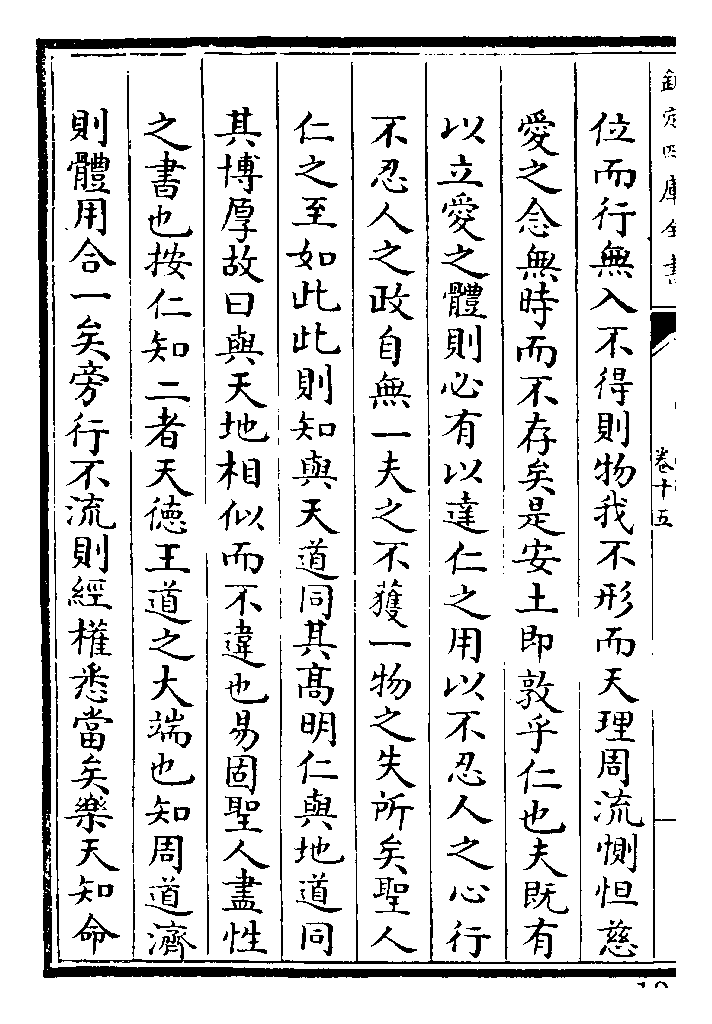 欽定四庫全書
卷十五
位而行無入不得則物我不形而天理周流惻怛慈
愛之念無時而不存矣是安土即敦乎仁也夫既有
以立愛之體則必有以達仁之用以不忍人之心行
不忍人之政自無一夫之不獲一物之失所矣聖人
仁之至如此此則知與天道同其髙明仁與地道同
其博厚故曰與天地相似而不違也易固聖人盡性
之書也按仁知二者天徳王道之大端也知周道濟
則體用合一矣旁行不流則經權悉當矣樂天知命